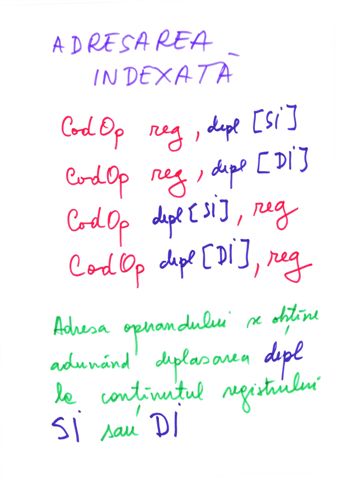 ADRESAREA
INDEXATĂ
CodOp reg, depl [Si]
CodOp reg, depl [Di]
CodOp depl [Si], reg
CodOp depl [Di], reg
Adresa operandului se obține
adunând deplasarea depl
la conținutul registrului
Si sau Di